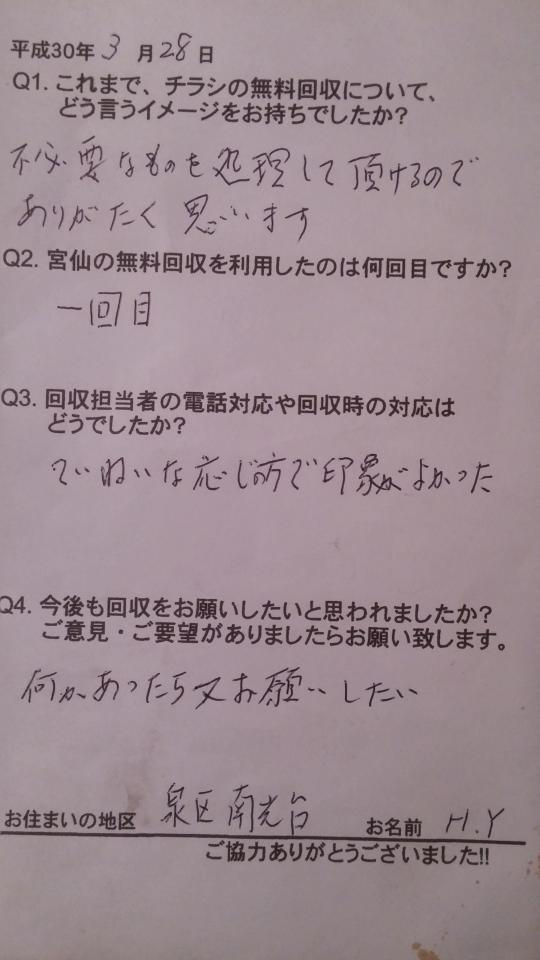 平成30年 3 月 28 日
Q1. これまで、チラシの無料回収について、
どう言うイメージをお持ちでしたか?
不必要なものを処理して頂けるので
ありがたく思います
Q2. 宮仙の無料回収を利用したのは何回目ですか?
一回目
Q3. 回収担当者の電話対応や回収時の対応は
どうでしたか?
ていねいな応じ方で印象がよかった
Q4. 今後も回収をお願いしたいと思われましたか?
ご意見・ご要望がありましたらお願い致します。
何かあったら又お願いしたい
お住まいの地区 泉区南光台 お名前 H.Y
ご協力ありがとうございました!!